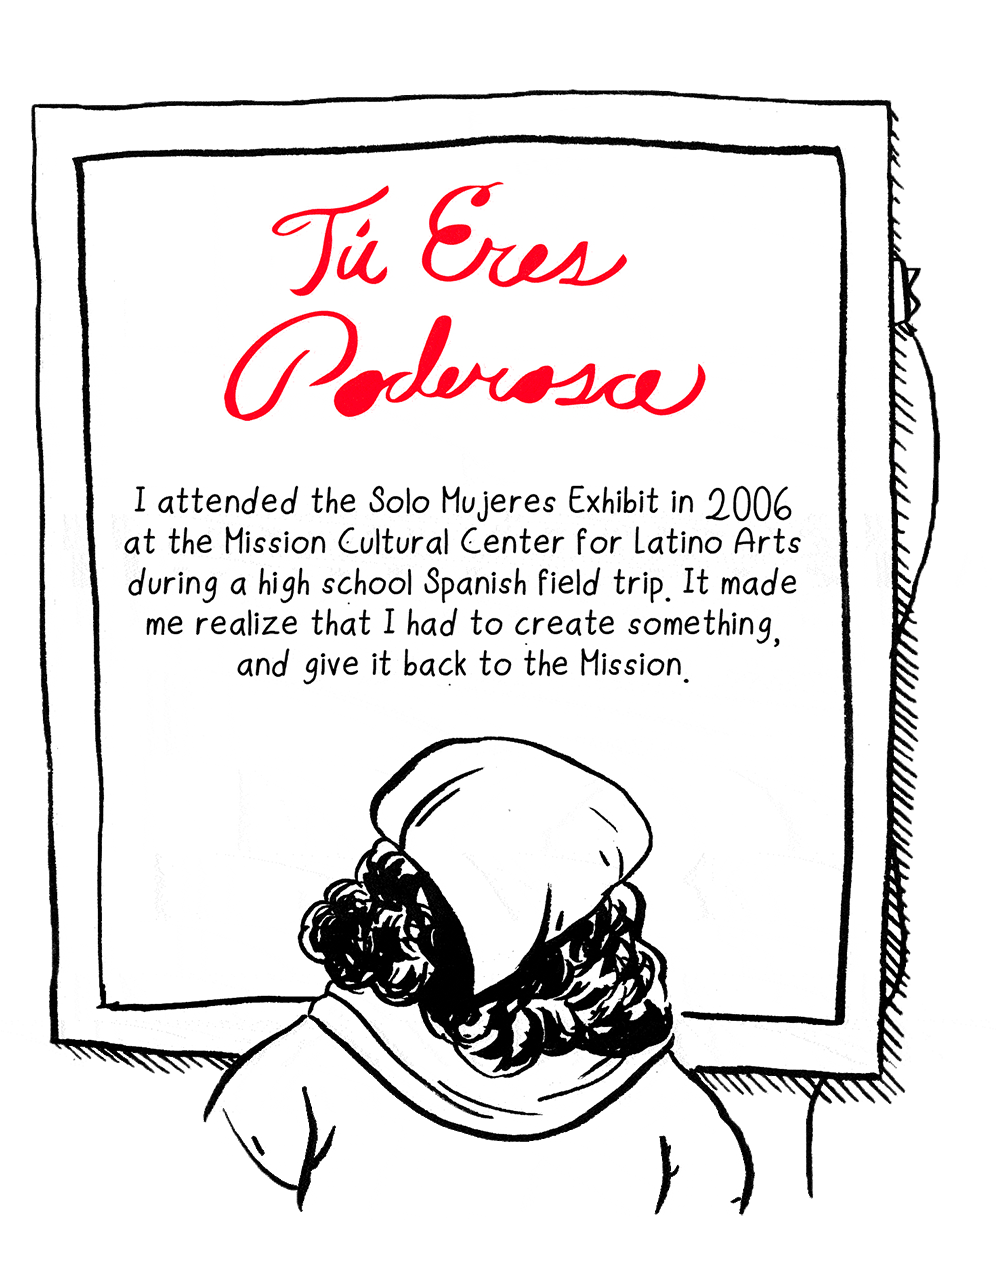 Tú Eres
Poderosa
I attended the Solo Mujeres Exhibit in 2006
at the Mission Cultural Center for Latino Arts
during a high school Spanish field trip. It made
me realize that I had to create something,
and give it back to the Mission.